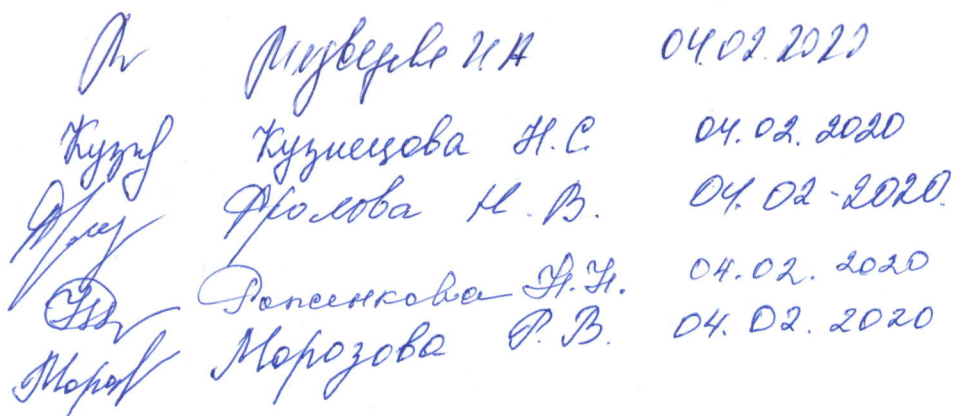 Медведева И.А 04.02.2020
Кузн Кузнецова Н.С. 04.02.2020
Фролова Н.В. 04.02-2020.
Н.Н. 04.02.2020
Мороз Морозова Р.В. 04.02.2020